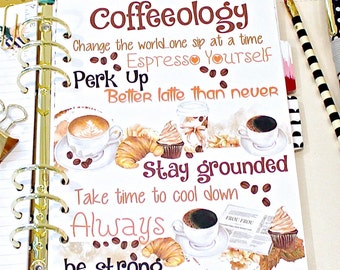 Coffeeology
Change the world..one sip at a time
Espresso Yourself
Perk Up
Better latte than never
Stay grounded
Take time to cool down
Always
be strong